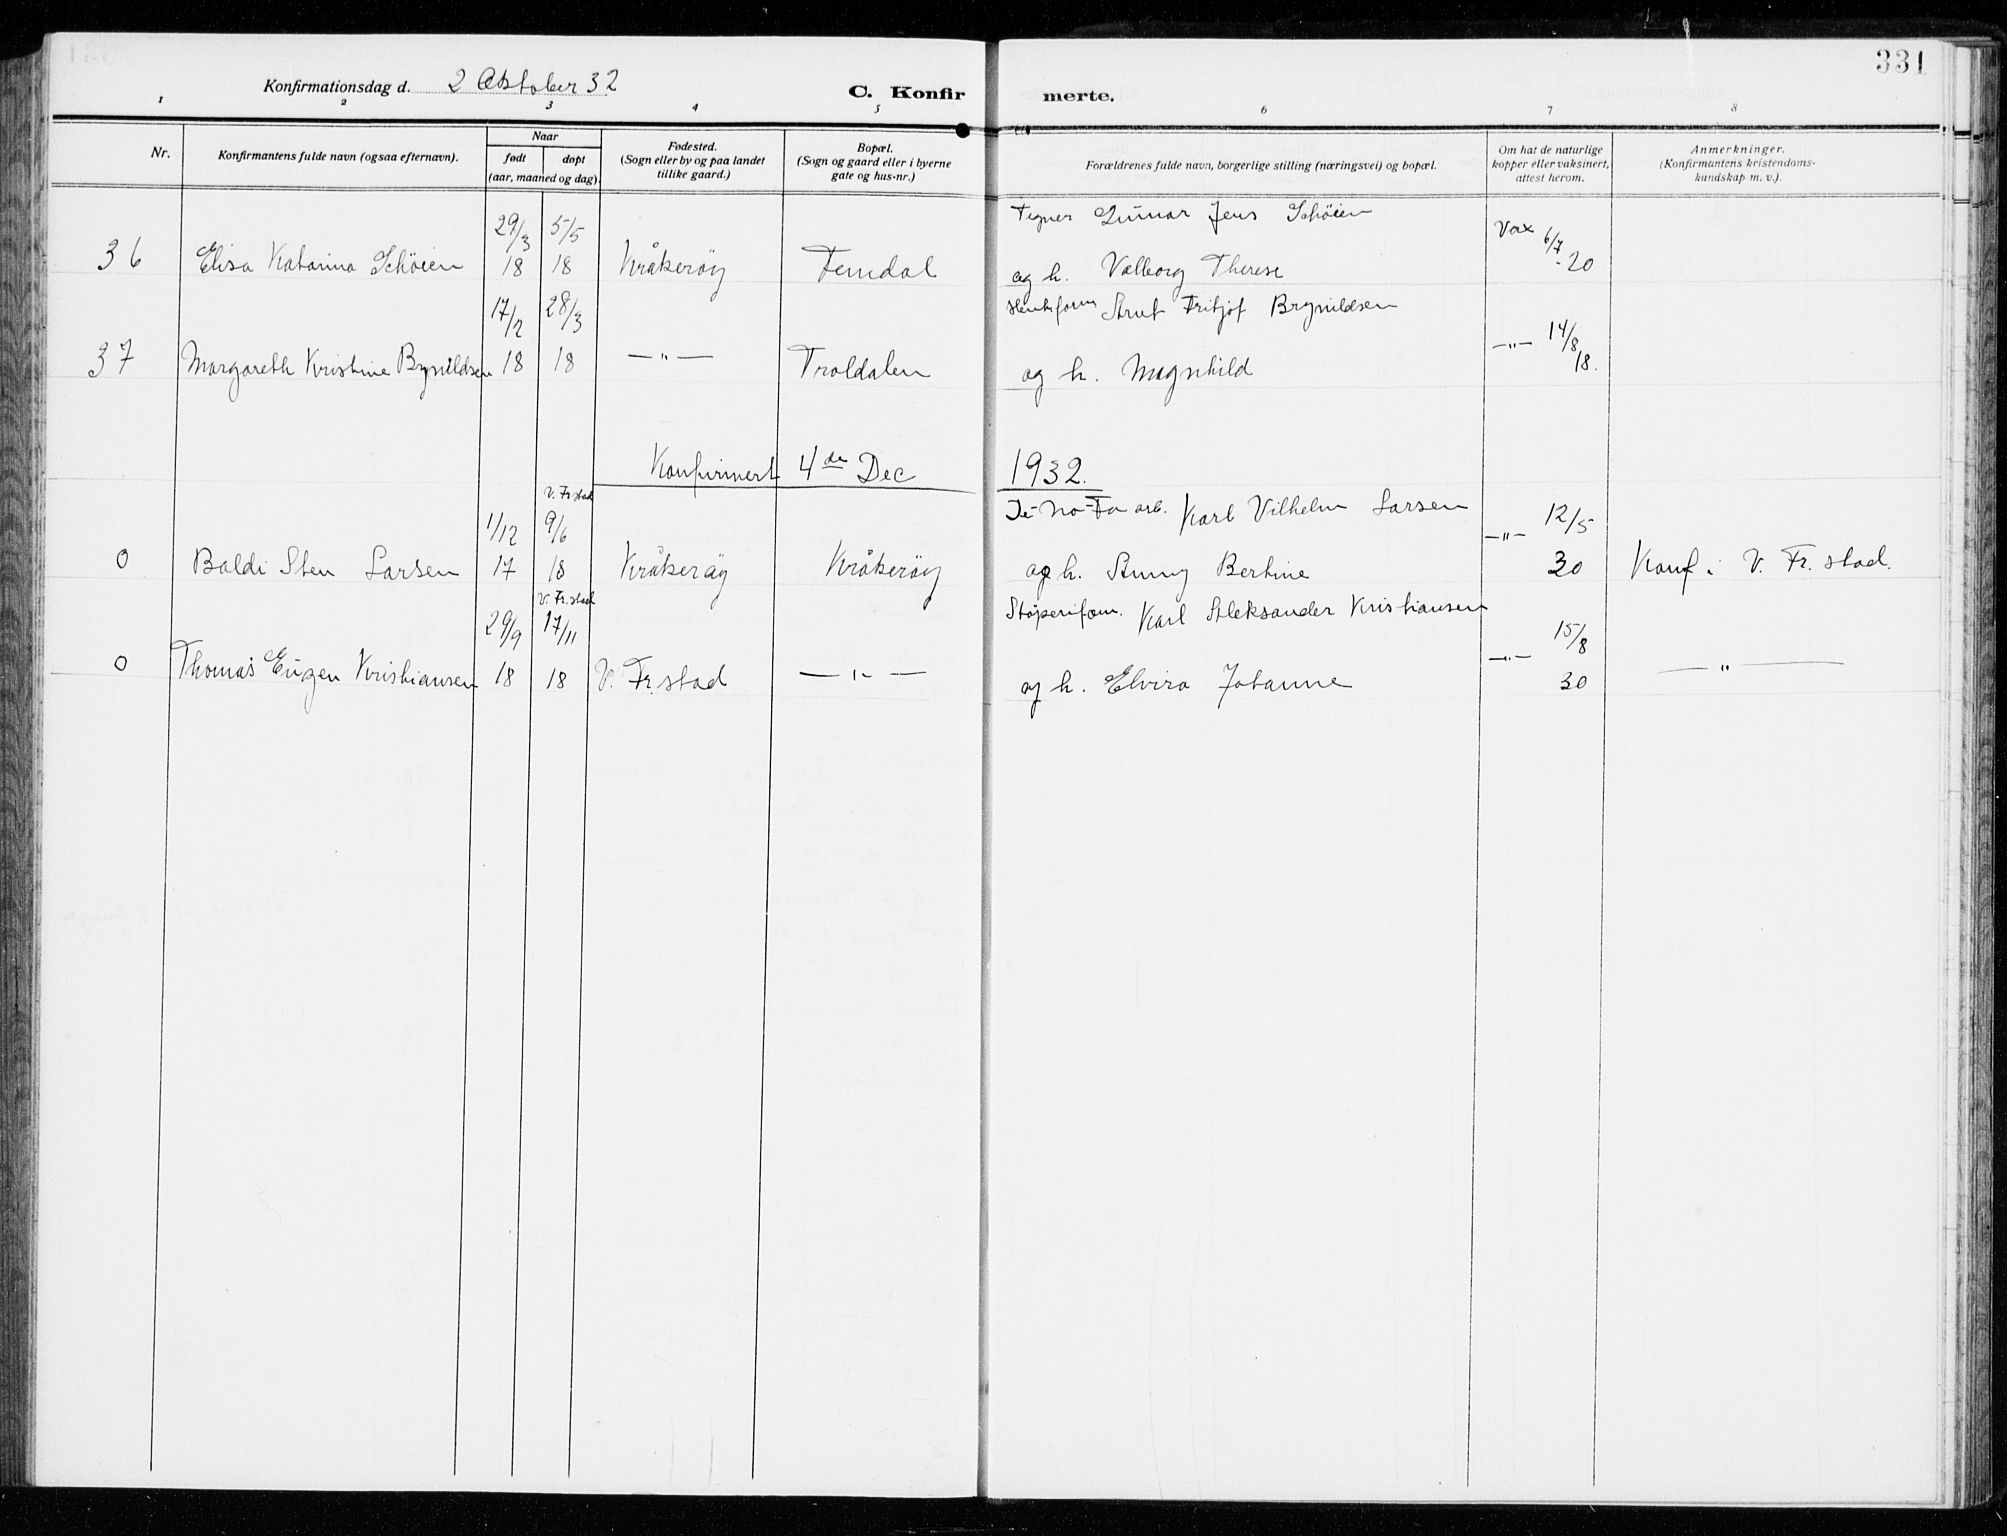 331
Konfirmationsdag d. 2 Oktober 32
C. Konfirmerte.
1 2 3 4 5 6 7 8
Nr.
Konfirmantens fulde navn (ogsaa efternavn).
Naar
født døpt
(aar, maaned og dag).
Fødested.
(Sogn eller by og paa landet
tillike gaard.)
Bopæl.
(Sogn og gaard eller i byerne
gate og hus-nr.)
Forældrenes fulde navn, borgerlige stilling (næringsvei) og bopæl.
Om hat de naturlige
kopper eller vaksinert,
attest herom.
Anmerkninger.
(Konfirmantens kristendoms-
kundskap m. v.).
29/3 5/5 Tegner Gunnar Jens Schöien Vax 6/7
36 Elisa Katarina Schöien 18 18 Kråkeröy Femdal og h. Valborg Therese -20
17/2 28/3 Arnt Fritjof Brynildsen
37 Margareth Kristine Brynildsen 18 18 —"— Troldalen og h. Magnhild —"— 14/8 18.
Konfirmert 4de Dec 1932.
V. Fr.stad
1/12 9/6 De-No-Fa arb. Karl Vilhelm Larsen —"— 12/5
0 Baldi Sten Larsen 17 18 Kråkeröy Kråkeröy og h. Anny Bertine 30 Konf i V. Fr. stad.
V. Fr. stad
29/9 17/11 Støperiform. Karl Aleksander Kristiansen 15/8
0 Thomas Eugen Kristiansen 18 18 V. Fr.stad —"— og h. Elvira Johanne —"— 30 —"—